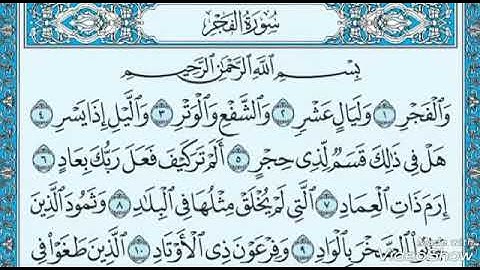 سُورَةُ الفَجْرِ
بِسْمِ اللَّهِ الرَّحْمَٰنِ الرَّحِيمِ
وَالْفَجْرِ ١ وَلَيَالٍ عَشْرٍ ٢ وَالشَّفْعِ وَالْوَتْرِ ٣ وَاللَّيْلِ إِذَا يَسْرِ ٤
هَلْ فِي ذَٰلِكَ قَسَمٌ لِّذِي حِجْرٍ ٥ أَلَمْ تَرَ كَيْفَ فَعَلَ رَبُّكَ بِعَادٍ ٦
إِرَمَ ذَاتِ الْعِمَادِ ٧ الَّتِي لَمْ يُخْلَقْ مِثْلُهَا فِي الْبِلَادِ ٨ وَثَمُودَ الَّذِينَ
الصَّخْرَ بِالْوَادِ ٩ وَفِرْعَوْنَ ذِي الْأَوْتَادِ ١٠ الَّذِينَ طَغَوْا فِي
VideoShow